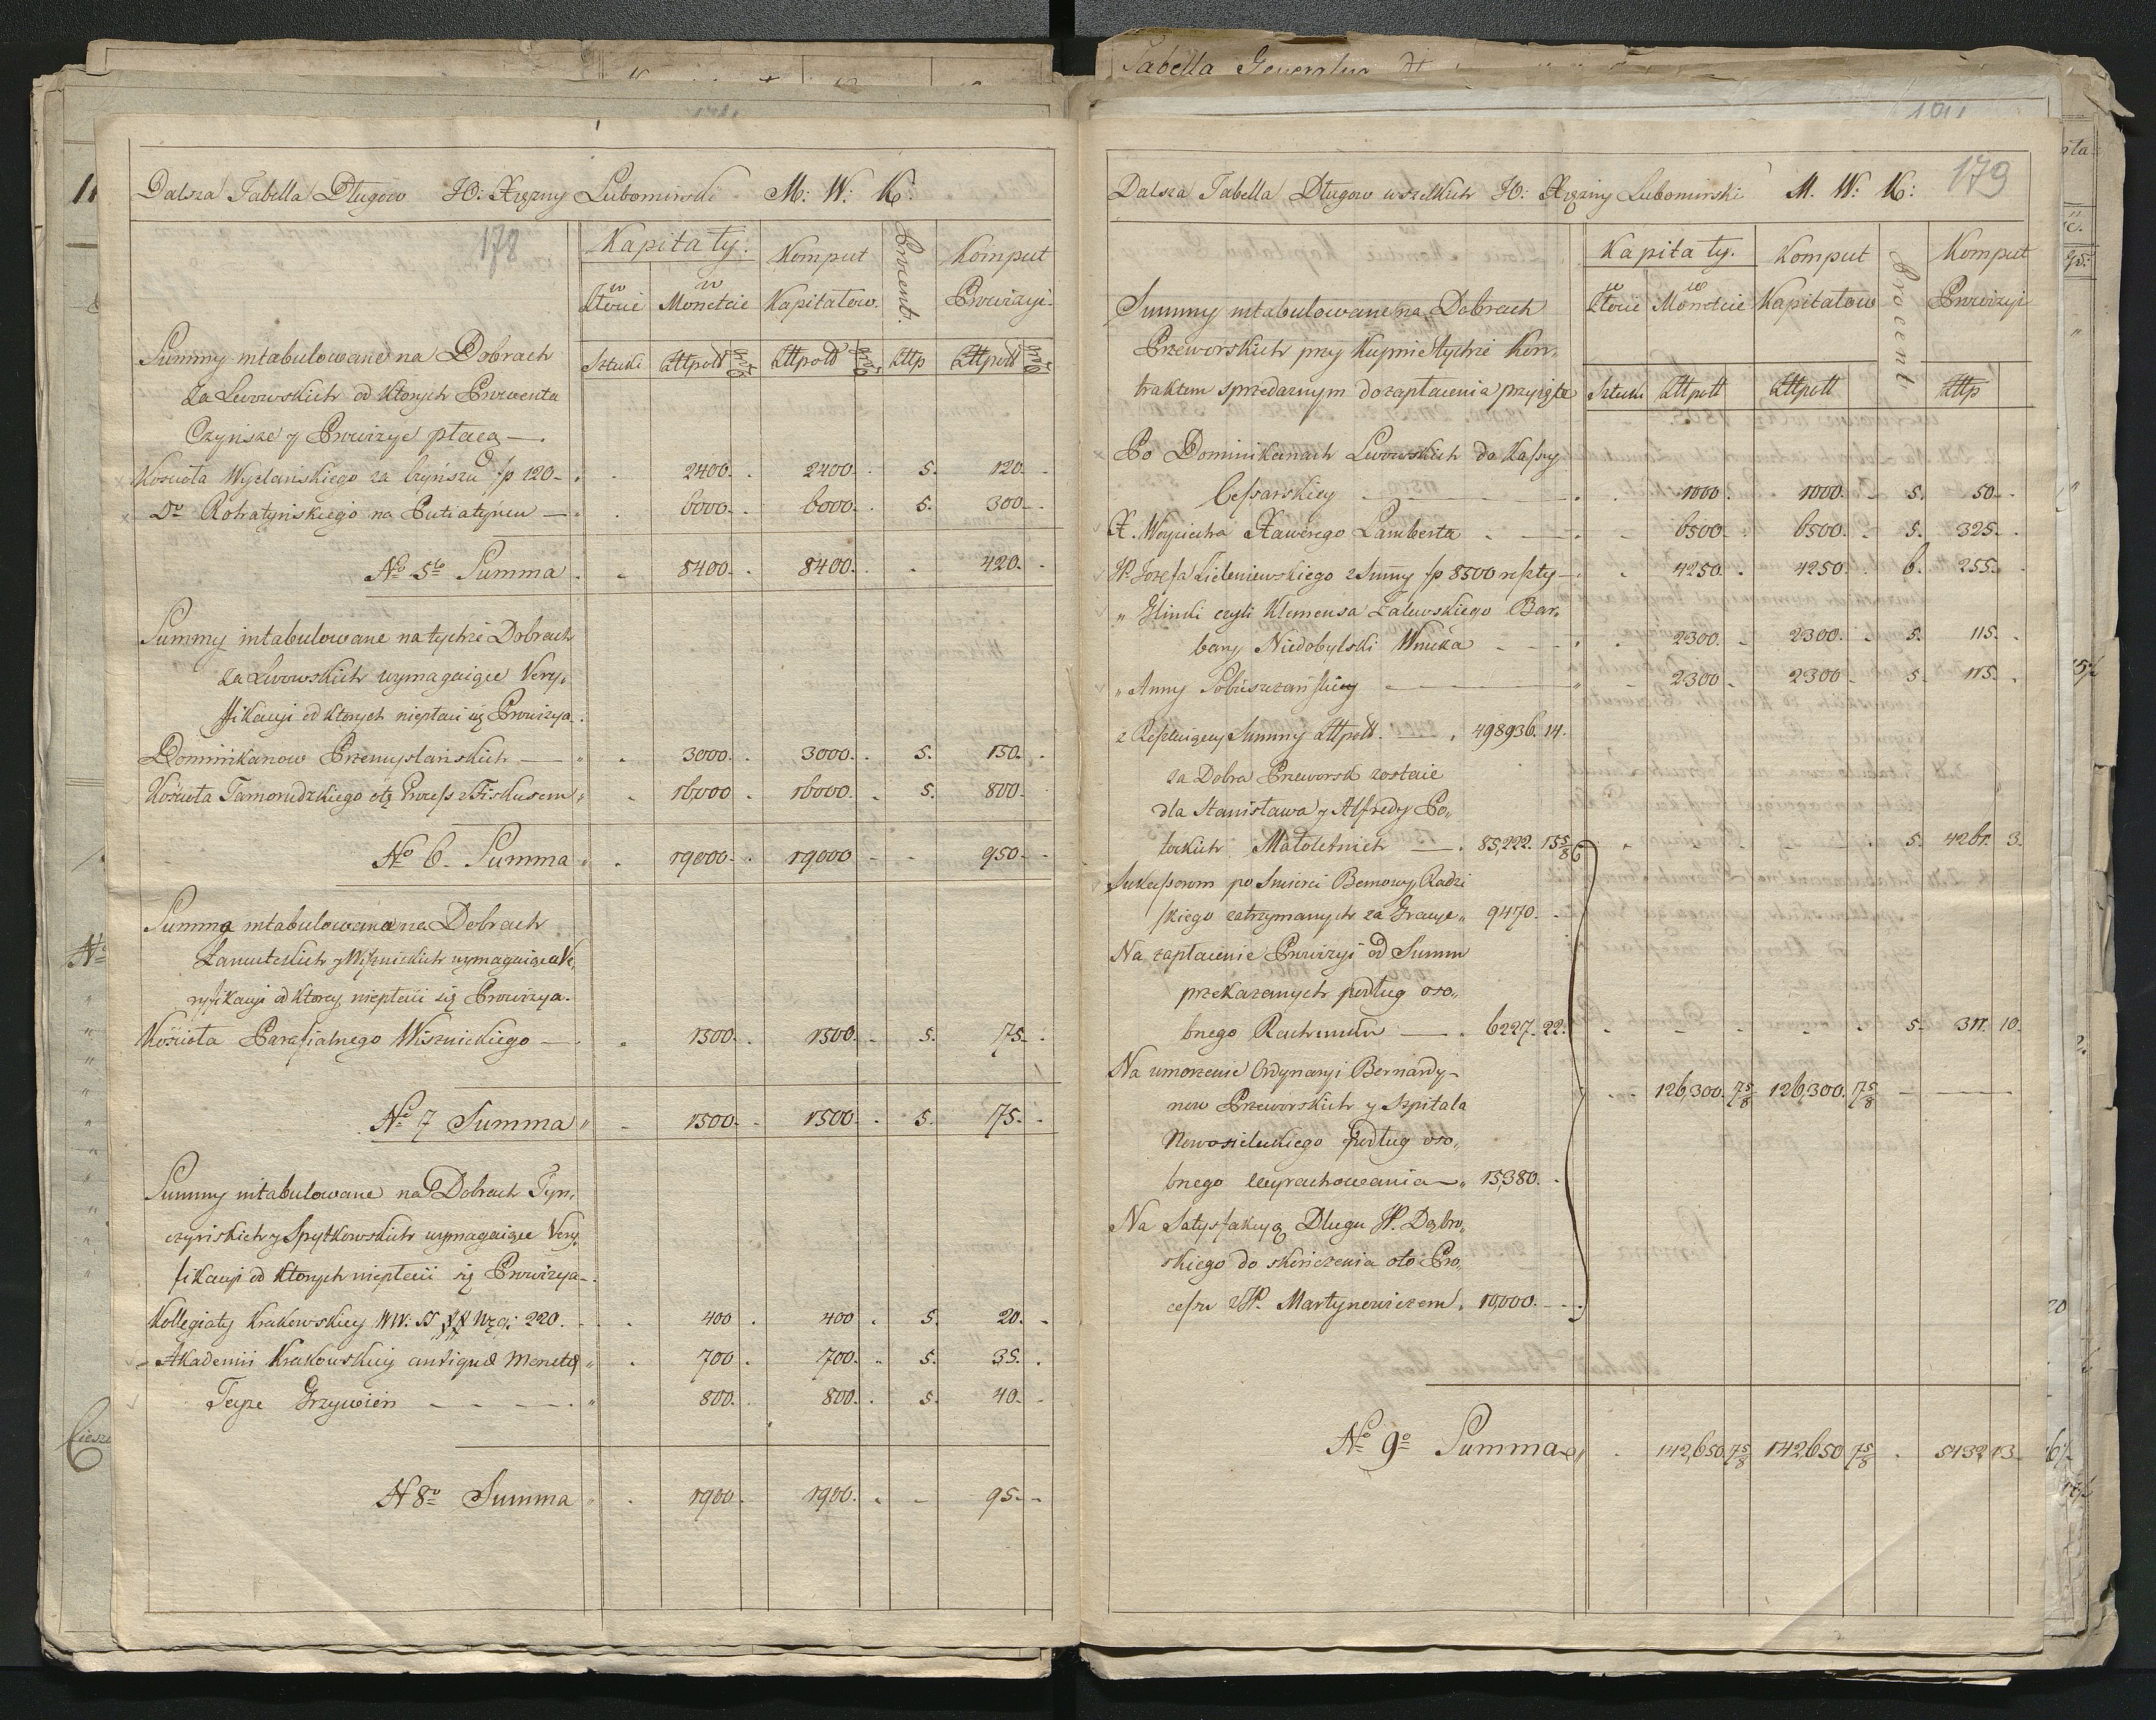 Dalsza Tabella Długow JO: Xiężny Lubomirski M: W: K:
178
Kapitały. Komput Procent. Komput
w Złocie w Monetcie Kapitałow. Prowizyi
Sztuki Złtpoll Złtpoll Złtp Złtpoll
Summy intabulowane na Dobrach
za Lwowskich od ktorych Prowenta
Czynsze y Prowizye płacą —.
Kościoła Wyżlańskiego za Czynszu fp 120 - 2400. 2400. 5. 120.
Do Rohatyńskiego na Putiatyncu — 6000. 6000. 5. 300.
No 5to Summa 8400. 8400. 420.
Summy intabulowane na tychże Dobrach
za Lwowskich wymagaiące Very,
ffikacyi od ktorych niepłaci się Prowizya.
Dominikanow Przemyslańskich — 3000. 3000. 5. 150.
Kościoła Tarnorudzkiego oto Process z Fiskusem 16000 16000. 5. 800.
No 6. Summa 19000. 19000 950.
Summa intabulowana na Dobrach
Łancutskich y Wisznickich wymagaiąca Ve,
ryfikacyi od ktorey niepłaci się Prowizya.
Kościoła Parafialnego Wisznickiego — 1500. 1500. 5. 75.
No 7 Summa 1500. 1500. 5. 75.
Summy intabulowane na Dobrach Tyn,
czyńskich y Spytkowskich wymagaiące Very,
fikacyi od ktorych niepłaci się Prowizya.
Kollegiaty Krakowskiey WW: SS XX 220. 400 400 5. 20.
Akademii Krakowskiey antiquæ Monetæ 700. 700. 5. 35.
Teyże Grzywien 800. 800. 5. 40.
N 8o Summa 1900. 1900. 95.
Tabella Generalna
Dalsza Tabella Długow wszelkich JO: Xiężny Lubomirski M. W: K:
179
Kapitały. Komput Procent Komput
w Złocie w Monetcie Kapitałow Prowizyi
Sztuki Złtpoll Złtpoll Złtp
Summy intabulowane na Dobrach
Przeworskich przy Kupnie tychże Kon,
traktem sprzedarnym do zapłacenia przyięte
Po Dominikanach Lwowskich do Kassy
Cessarskiey 1000. 1000. 5. 50.
X. Woyciecha Xawerego Lamberta 6500. 6500. 5. 325.
W. Jozefa Zieleniewskiego z Summy fp 8500 reszty 4250. 4250. 6. 255.
" Glinki czyli Klemensa Zalewskiego Bar,
bary Niedobylski Wnuka 2300. 2300. 5. 115.
" Anny Sobiszczańskiey 2300 2300 5. 115.
z Resztuiącey Summy Złtpoll. 498936. 14.
za Dobra Przeworsk zostaie
dla Stanisława y Alfredy Po„
tockich Małoletnich — 85,222. 15 5/8 5. 4261. 3.
Sukcessorom po Smierci Bemowey Radzi
skiego zatrzymanych za Gracye „ 9470.
Na zapłacenie Prowizyi od Summ
przekazanych podług oso„
bnego Rachunku — 6227. 22. 5. 311. 10.
Na umorzenie Ordynaryi Bernardy- 126,300. 7 5/8 126,300. 7 5/8
now Przeworskich y Szpitala
Nowosieleckiego podług oso„
bnego wyrachowania — „ 15,380.
Na Satysfakcyą Długu W. Dąbro„
skiego do skończenia oto Pro„
cessu z W. Martynowiczem „ 10,000.
No 9o Summa 142,650 7 5/8 142,650 7 5/8 5432 13.